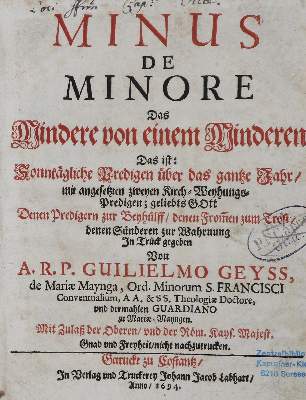 MINUS
DE
MINORE
Das
Mindere von einem Minderen
Das ist:
Sonntägliche Predigen über das gantze Jahr/
mit angesetzten zweyen Kirch-Weyhungs-
Predigen; geliebts GOtt
Denen Predigern zur Beyhülff/ denen Frommen zum Trost/
denen Sünderen zur Wahrnung
In Truck gegeben
Von
A. R. P. GUILIELMO GEYSS,
de Mariæ Maynga, Ord. Minorum S. FRANCISCI
Conventualium, AA. & SS. Theologiæ Doctore,
und dermahlen GUARDIANO
zu Mariæ-Mayngen.
Mit Zulaß der Oberen/ und der Röm. Kays. Majest.
Gnad und Freyheit/ nicht nachzutrucken.
Getruckt zu Costantz/
In Verlag und Truckerey Johann Jacob Labhart/
Anno/ 1694.
Zentralbibliothek
Kapuziner-Kl
6210 Sursee